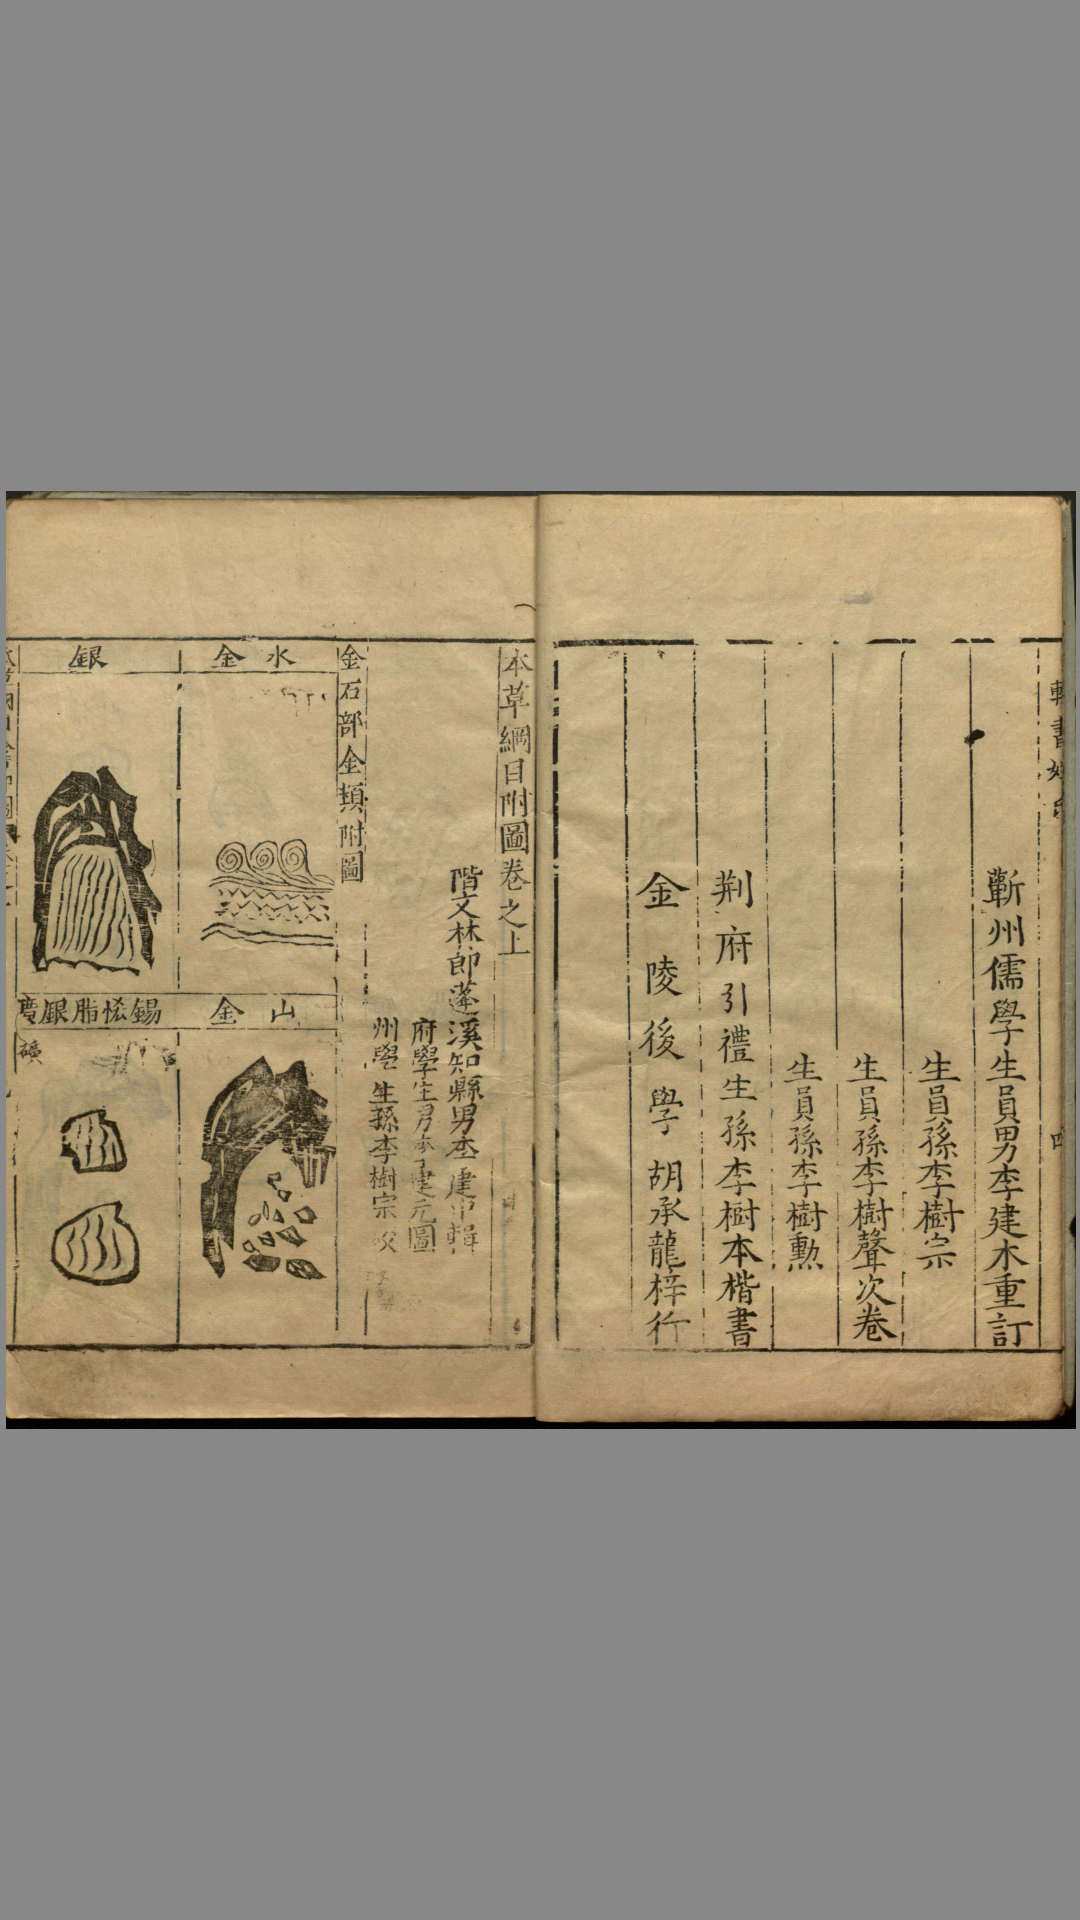 蘄州儒學生員男李建木重訂
生員孫李樹宗
生員孫李樹聲次卷
生員孫李樹勲
荆府引禮生孫李樹本楷書
金陵後學胡承龍梓行
本草綱目附圖卷之上
階文林郎蓬溪知縣男李建中輯
府學生男李建元圖
州學生孫李樹宗校
金石部金類附圖
水金
山金
銀
錫恡脂銀慶
礦